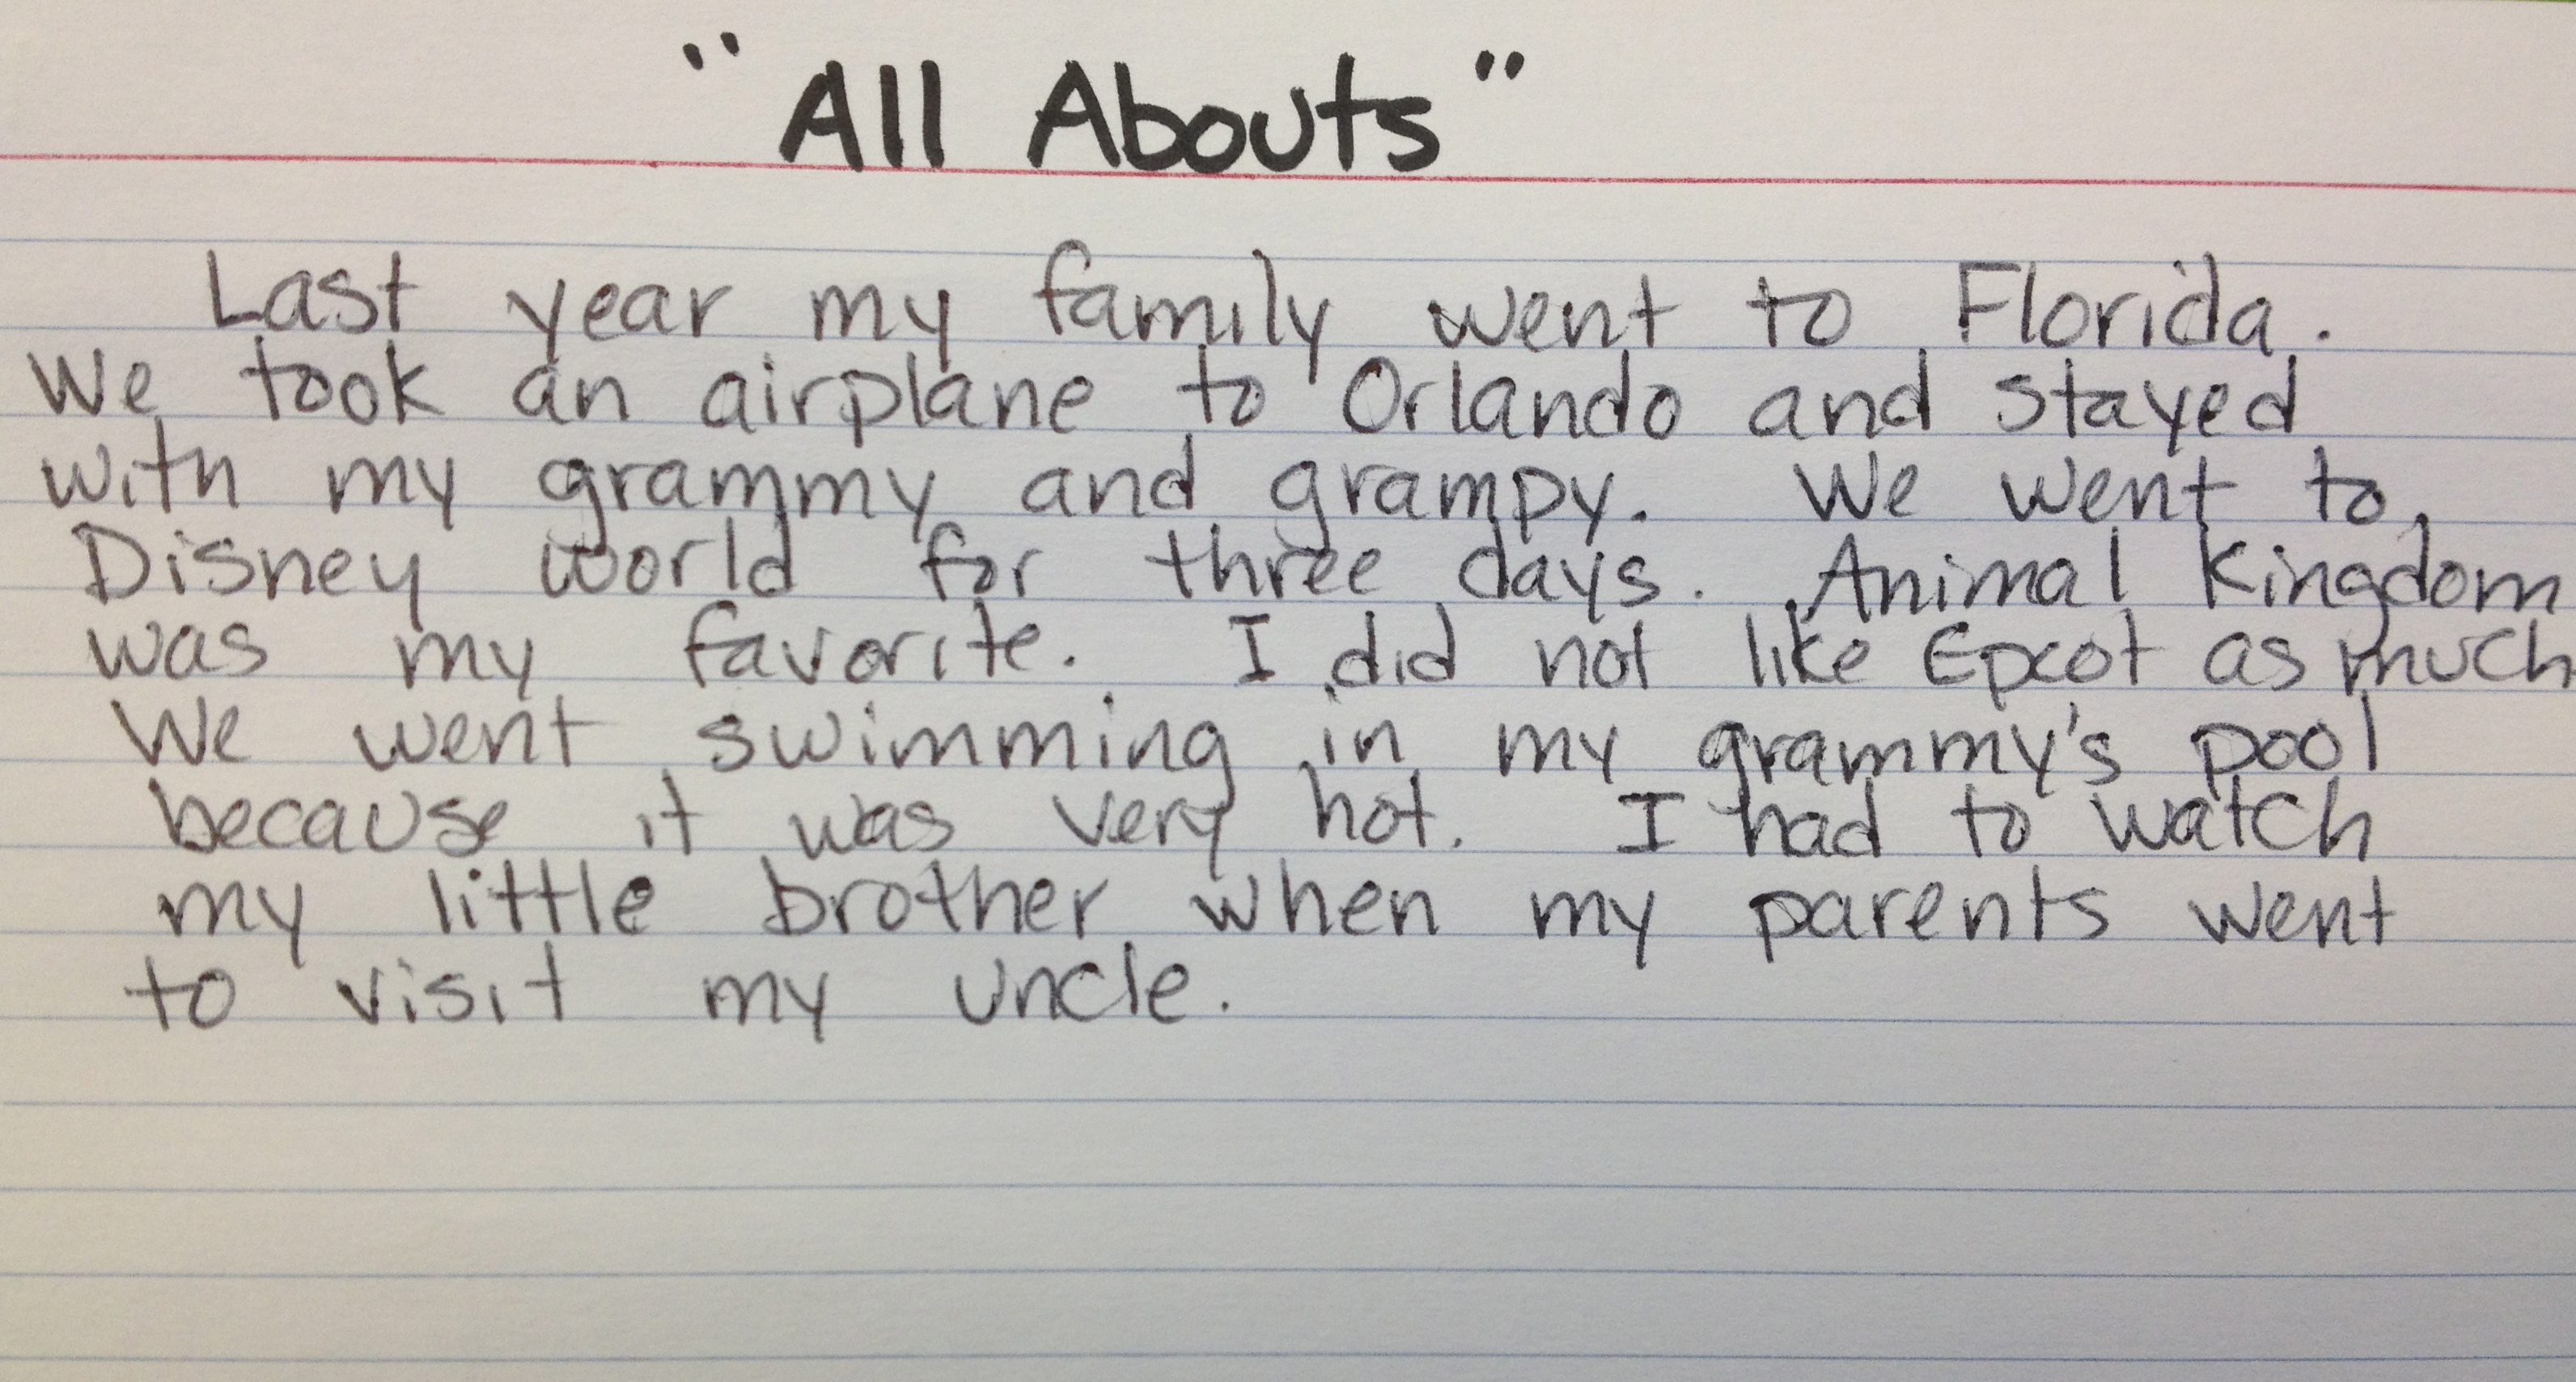 "All Abouts"
Last year my family went to Florida.
We took an airplane to Orlando and stayed
with my grammy and grampy. We went to
Disney world for three days. Animal Kingdom
was my favorite. I did not like Epcot as much
We went swimming in my grammy's pool
because it was very hot. I had to watch
my little brother when my parents went
to visit my uncle.